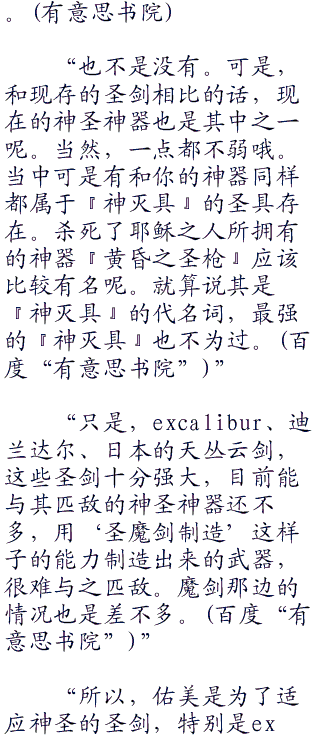 。(有意思书院)
“也不是没有。可是，
和现存的圣剑相比的话，现
在的神圣神器也是其中之一
呢。当然，一点都不弱哦。
当中可是有和你的神器同样
都属于『神灭具』的圣具存
在。杀死了耶稣之人所拥有
的神器『黄昏之圣枪』应该
比较有名呢。就算说其是
『神灭具』的代名词，最强
的『神灭具』也不为过。(百
度“有意思书院”)”
“只是，excalibur、迪
兰达尔、日本的天丛云剑，
这些圣剑十分强大，目前能
与其匹敌的神圣神器还不
多，用‘圣魔剑制造’这样
子的能力制造出来的武器，
很难与之匹敌。魔剑那边的
情况也是差不多。(百度“有
意思书院”)”
“所以，佑美是为了适
应神圣的圣剑，特别是ex